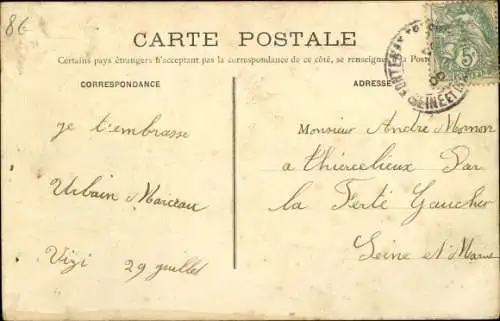 86
CARTE POSTALE
Certains pays étrangers n'acceptant pas la correspondance de ce côté, se renseigner Poste
CORRESPONDANCE
ADRESSE
je t'embrasse
Urbain Marceau
Vizi 29 juillet
Monsieur Andre Mornon
a Thiercelieux Par
la Ferté Gaucher
Seine et Marne
5